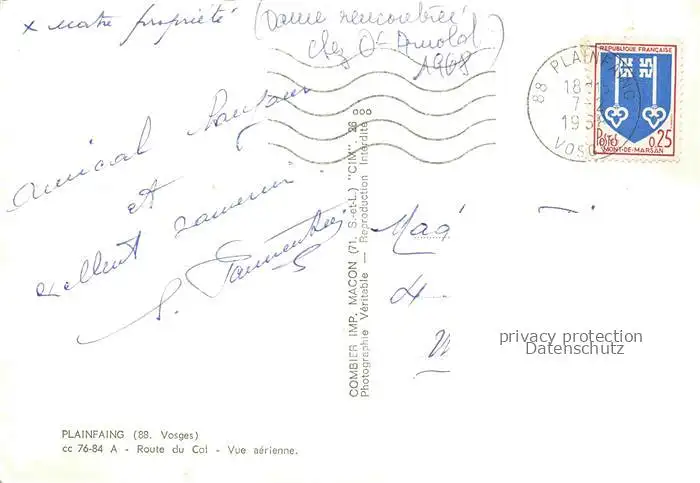 x notre propriété (Dame rencontrée
chez Dr Arnold)
1968
amical bonjour
et
excellent souvenir.
COMBIER IMP. MACON (71. S.-et-L.) "CIM"
Photographie Véritable — Reproduction Interdite
88 PLAINFAING
18H
7-2
1968
VOSGES
REPUBLIQUE FRANÇAISE
POSTES 0,25
MONT-DE-MARSAN
privacy protection
Datenschutz
PLAINFAING (88. Vosges)
cc 76-84 A - Route du Col - Vue aérienne.